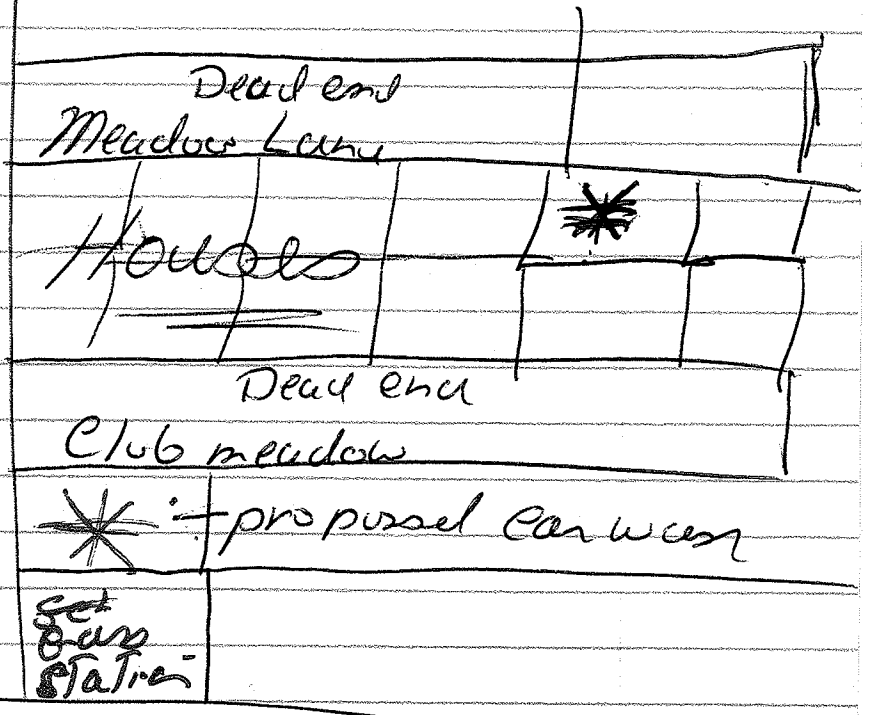 Dead end
Meadow Lane
Houses
Dead end
Club meadow
proposed car wash
Gass
station